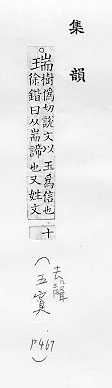 集韻
。瑞樹偽切說文以玉為信也
玉徐鍇曰从耑諦也又姓文十
(去聲
五寘
P467)